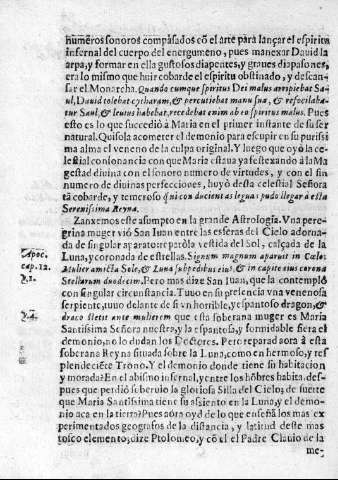 numeros sonoros compasados cõ el arte para lançar el espiritu
infernal del cuerpo del energumeno, pues manexar Dauid la
arpa, y formar en ella gustosos diapentes, y graues diapasones,
era lo mismo que huir cobarde el espiritu obstinado, y descan-
sar el Monarcha. Quando cumque spiritus Dei malus arripiebat Sa-
ul, Dauid tolebat cytharam, & percutiebat manu sua, & refocilaba-
tur Saul, & leuius habebat, recedebat enim ab eo spiritus malus. Pues
esto es lo que sucediò à Maria en el primer instante de su ser
natural. Quisola acometer el demonio para escupir en su purissi
ma alma el veneno de la culpa original. Y luego que oyò la ce-
lestial consonancia con que Maria estaua ya festexando à la Ma
gestad diuina con el sonoro numero de virtudes, y con el sin
numero de diuinas perfecciones, huyò desta celestial Señora
tã cobarde, y temeroso que ni con ducientas leguas pudo llegar à esta
Serenissima Reyna.
Zanxemos este asumpto en la grande Astrologia. Vna pere-
grina muger viò San Iuan entre las esferas del Cielo adorna-
da de singular aparato; reparòla vestida del Sol, calçada de la
Apoc.
cap. 12.
℣. 1.
Luna, y coronada de estrellas. Signum magnum aparuit in Cælo:
Mulier amicta Sole, & Luna sub pedibus eius, & in capite eius corona
Stellarum duodecim. Pero mas dize San Iuan, que la contemplò
con singular circunstancia. Tuuo en su presencia vna venenosa
serpiente, tuuo delante de si vn horrible, y espantoso dragon, &
℣. 4.
draco stetit ante mulierem que esta soberana muger es Maria
Santissima Señora nuestra, y la espantosa, y formidable fiera el
demonio, no lo dudan los Doctores. Pero reparad aora à esta
soberana Reyna situada sobre la Luna, como en hermoso, y res
plendeciente Trono. Y el demonio donde tiene su habitacion
y morada? En el abismo infernal, y entre los hõbres habita, des-
pues que perdiò soberuio la gloriosa Silla del Cielo; de suerte
que Maria Santissima tiene su assiento en la Luna, y el demo-
nio aca en la tierra? Pues aora oyd de lo que enseñã los mas ex
perimentados geografos de la distancia, y latitud deste mas
tosco elemento; dize Ptolomeo, y cõ el el Padre Clauio de la
me-